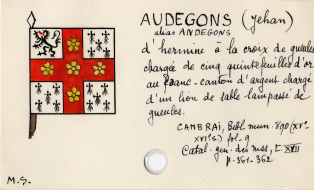 AUDEGONS (Jehan)
alias ANDEGONS
d'hermine à la croix de gueules
chargée de cinq quintefeuilles d'or
au franc-canton d'argent chargé
d'un lion de sable lampassé de
gueules.
CAMBRAI, Bibl. mun. 890 (XVe-
XVIe s) fol. 9
Catal. gen. des mss, t. XVII
p. 361-362
M.S.